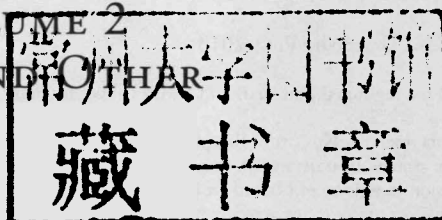 UME 2
ND OTHER
常州大学图书馆
藏书章